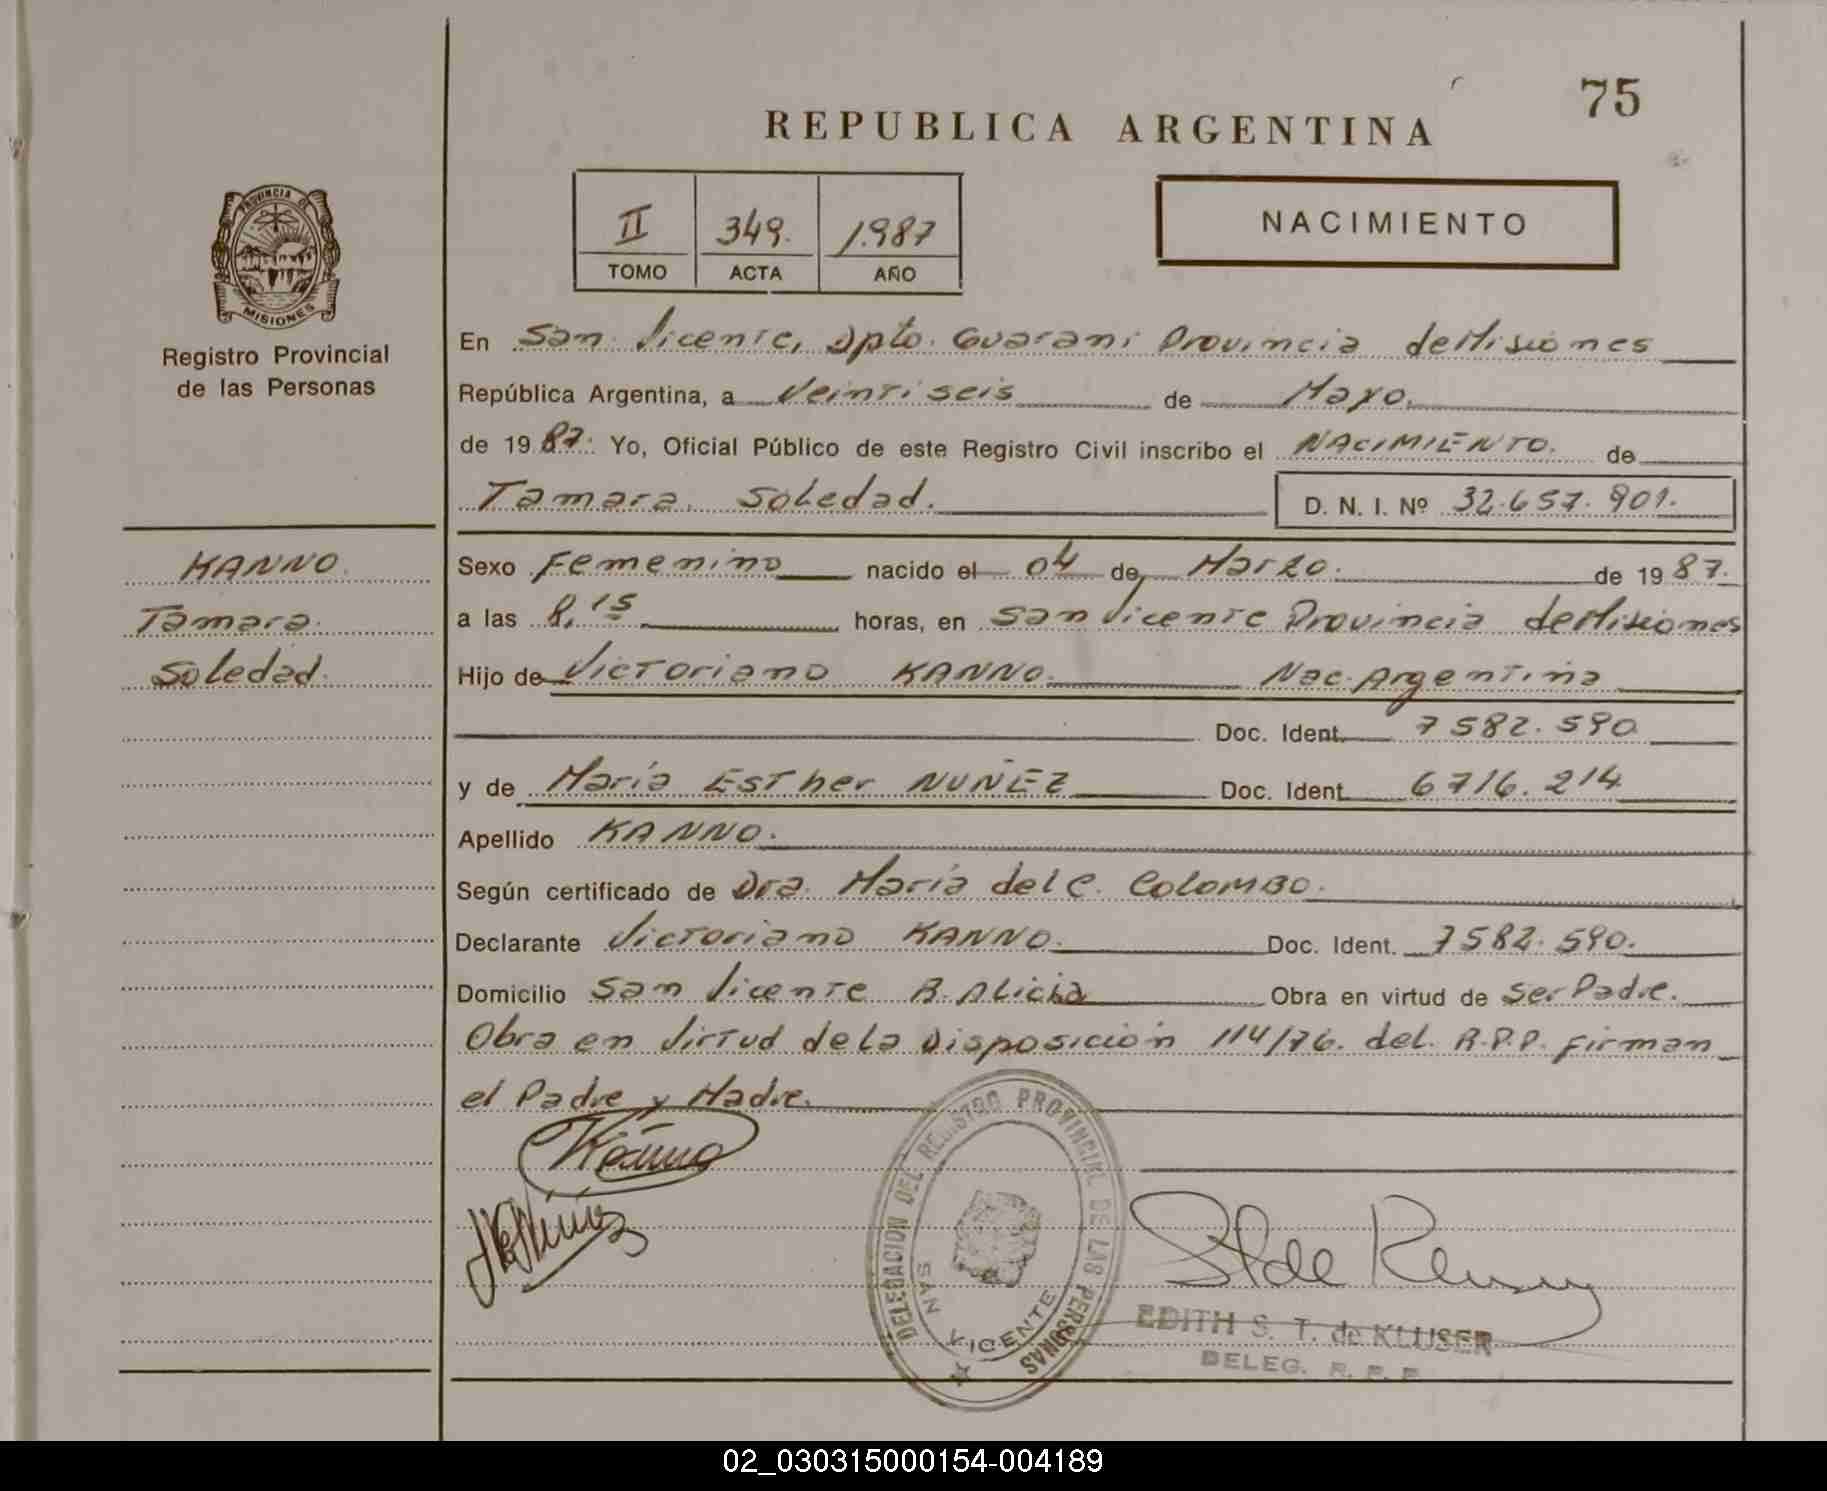 75
REPUBLICA ARGENTINA
II 349. 1.987
TOMO ACTA AÑO
NACIMIENTO
PROVINCIA DE
MISIONES
Registro Provincial
de las Personas
En San Vicente, Dpto. Guarani Provincia de Misiones
República Argentina, a Veintiseis de Mayo.
de 1987. Yo, Oficial Público de este Registro Civil inscribo el NACIMIENTO. de
Tamara Soledad. D. N. I. Nº 32.657.901.
KANNO.
Tamara.
Soledad.
Sexo Femenino nacido el 04 de Marzo. de 1987.
a las 8,15 horas, en San Vicente Provincia de Misiones
Hijo de Victoriano KANNO. Nac. Argentina
Doc. Ident. 7582.590
y de María Esther NUÑEZ Doc. Ident. 6716.214
Apellido KANNO.
Según certificado de Dra. María del C. COLOMBO.
Declarante Victoriano KANNO. Doc. Ident. 7582.590.
Domicilio San Vicente B. Alicia Obra en virtud de Ser Padre.
Obra en Virtud de la Disposición 114/76. del. R.P.P. firman
el Padre y Madre.
Kanno
DELEGACION DEL REGISTRO PROVINCIAL DE LAS PERSONAS
SAN VICENTE
EDITH S. T. de KLUSER
DELEG. R. P. P.
02_030315000154-004189